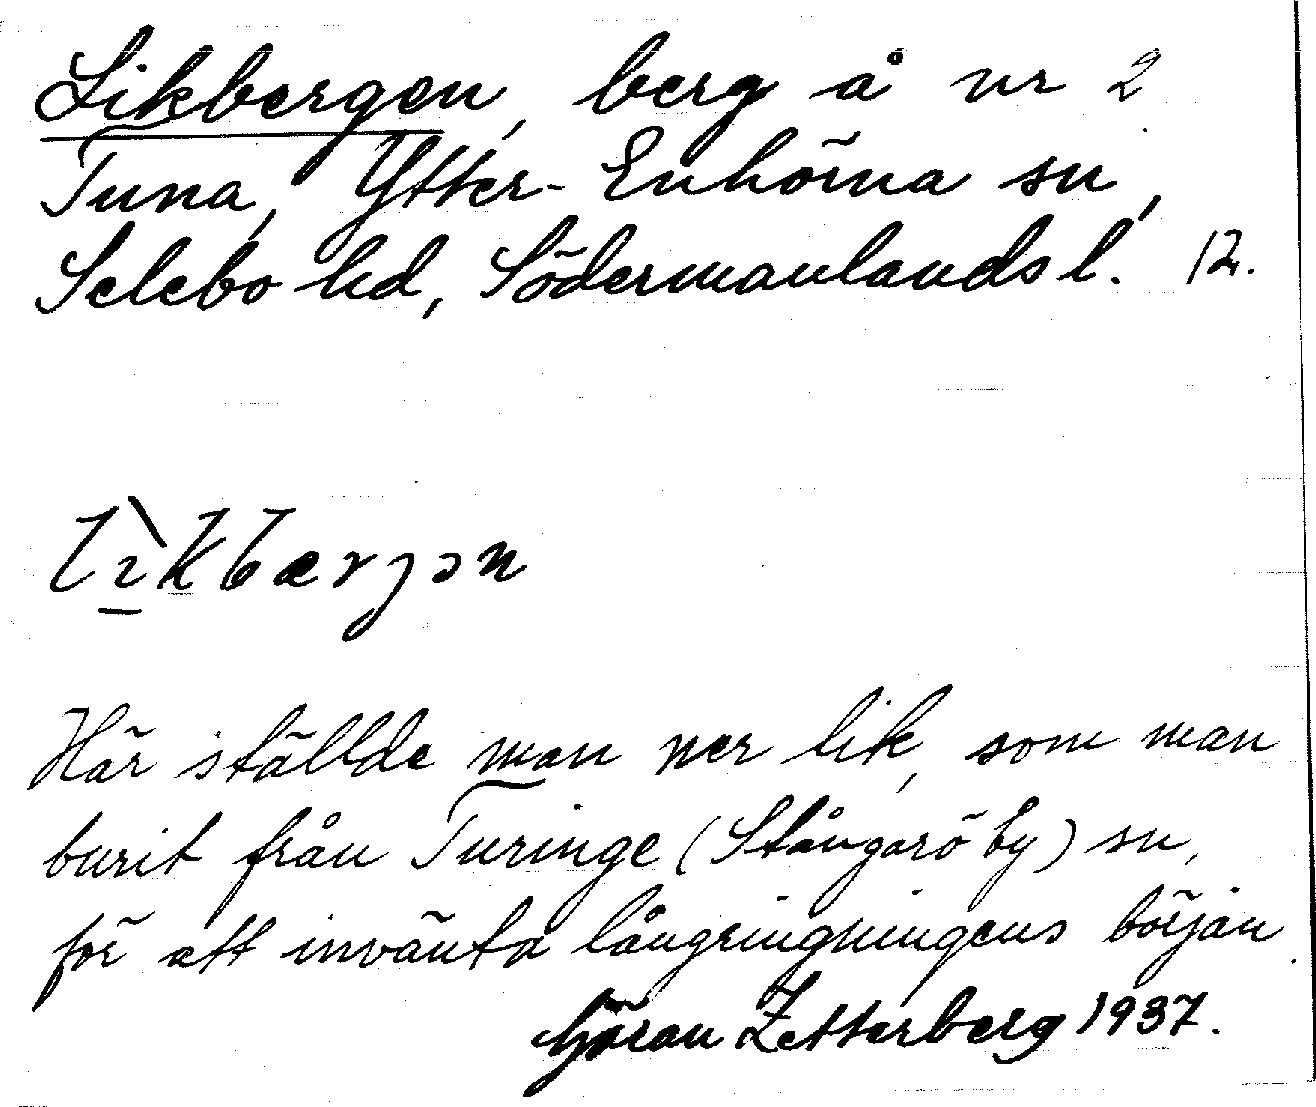 Likbergen, berg å nr 2
Tuna, Ytter-Enhörna sn,
Selebo hd, Södermanlands l. 12.
lìkbærjən
Här ställde man ner lik, som man
burit från Turinge (Stångarö by) sn,
för att invänta långringningens början.
Göran Zetterberg 1937.